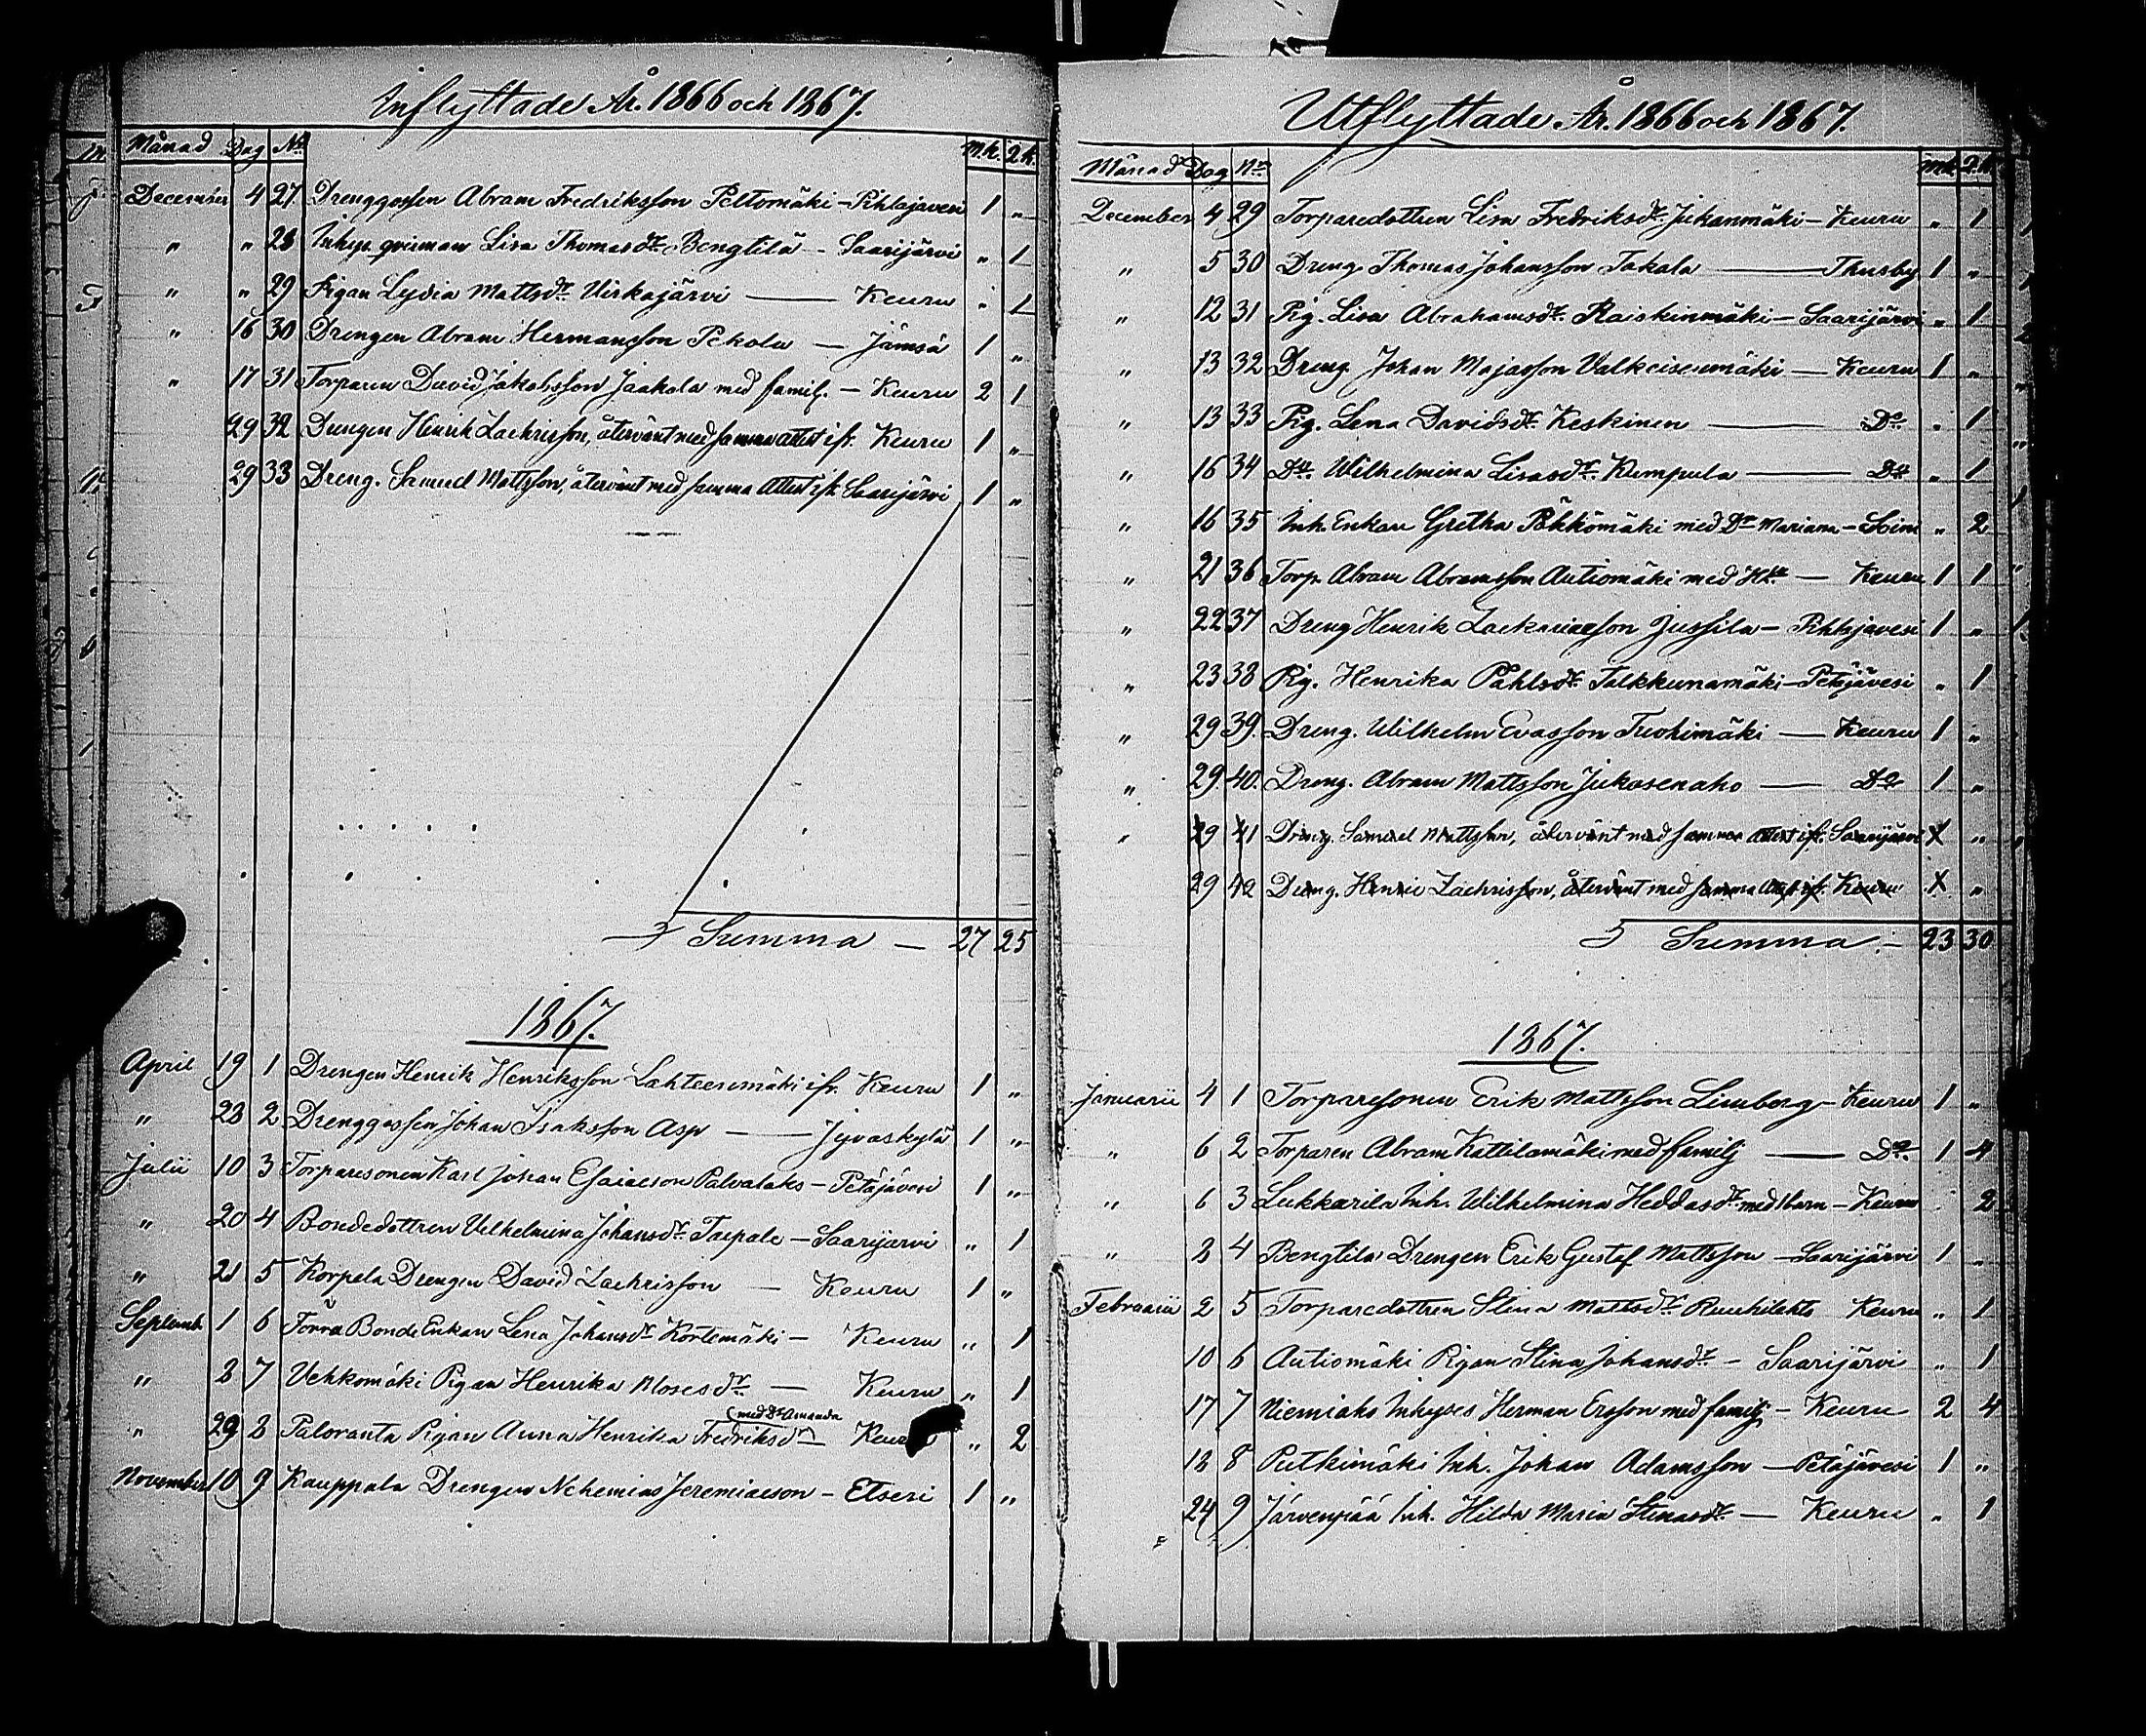 Inflyttade År. 1866 och 1867.
Månad Dag No M.k. Q.k.
December 4 27 Drenggossen Abram Fredriksson Peltomäki - Pihlajavesi 1 "
" " 28 Inhys. qvinnan Lisa Thomasdr. Bengtilä - Saarijärvi " 1
" " 29 Pigan Lydia Mattsdr. Uiskajärvi — Keuru " 1
" 16 30 Drengen Abram Hermansson Pekola — Jämsä 1 "
" 17 31 Torparen David Jakobsson Jaakola med familj. — Keuru 2 1
29 32 Drengen Henrik Zachrisson, återvänt med samma attest ifr. Keuru 1 "
29 33 Dreng. Samuel Mattsson, återvänt med samma Attest ifr. Saarijärvi 1 "
Summa — 27 25
1867.
April 19 1 Drengen Henrik Henriksson Lahteenmäki ifr. Keuru 1 "
" 28 2 Drenggossen Johan Isaksson Asp — Jyvaskylä 1 "
Julii 10 3 Torparesonen Karl Johan Esaiaeson Palvalaks - Petäjävesi 1 "
" 20 4 Bondedottren Vilhelmina Johansdr. Tarpale - Saarijarvi " 1
" 21 5 Korpela Drengen David Zachrisson — Keuru 1 "
Septemb. 1 6 Torra Bonde Enkan Lena Johansdr. Kortemäki - Keuru " 1
" 8 7 Vehkomäki Pigan Henrika Mosesdr. — Keuru " 1
(med Dr Amanda
" 29 8 Paloranta Pigan Anna Henrika Fredriksdr) - Keuru " 2
November 10 9 Kauppala Drengen Nehemias Jeremiaeson - Etseri 1 "
Utflyttade År. 1866 och 1867.
Månad Dag No M.k. Q.k.
December 4 29 Torparedottren Lisa Fredriksdr. Juhanmäki - Keuru " 1
" 5 30 Dreng Thomas Johansson Takala — Thusby 1 "
" 12 31 Pig. Lisa Abrahamsdr. Raiskinmäki - Saarijärvi " 1
" 13 32 Dreng Johan Majasson Valkeisenmäki — Keuru 1 "
" 13 33 Pig. Lena Davidsdr. Keskinen — Do " 1
" 16 34 Do. Wilhelmina Lisasdr. Kumpula — Do " 1
" 16 35 Inh. Enkan Gretha Pökkömäki med Dr Mariana - " 2
" 21 36 Torp. Abram Abramsson Autiomäki med Hu — Keuru 1 1
" 22 37 Dreng Henrik Zackariaeson Jussila - Pihlajavesi 1 "
" 23 38 Pig. Henrika Påhlsdr. Talkkunamäki - Petäjävesi " 1
" 29 39. Dreng. Wilhelm Evasson Tuohimäki — Keuru 1 "
" 29. 40. Dreng. Abram Mattsson Jukosenaho — Do 1 "
" 29 41 Dreng. Samuel Mattsson, återvänt med samma attest ifr. Saarijärvi X "
29 42 Dreng. Henric Zachrisson, återvänt med samma attest ifr. Keuru X "
Summa. - 23 30
1867.
Januarii 4 1 Torparesonen Erik Mattsson Limberg - Keuru 1 "
" 6 2 Torparen Abram Kattilamäki med familj — Do. 1 4
" 6 3 Lukkarila Inh. Wilhelmina Heddasdr. med 1 barn - Keuru 2
" 8 4 Bengtila Drengen Erik Gustaf Mattsson - Saarijärvi 1 "
Februarii 2 5 Torparedottren Stina Mattsdr. Ruuhilahti Keuru " 1
10 6 Autiomäki Pigan Stina Johansdr. - Saarijärvi " 1
17 7 Niemiaho Inhyses Herman Ersson med familj - Keuru 2 4
18 8 Putkimäki Inh. Johan Adamsson - Petäjävesi 1 "
24 9 Järvenpää Inh. Hilda Maria Stinasdr. — Keuru " 1